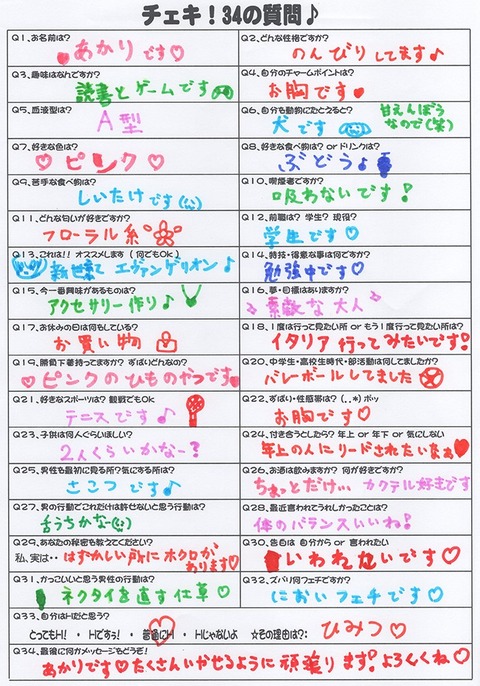 チェキ！34の質問♪
Q1、お名前は？
あかりです♡
Q2、どんな性格ですか？
のんびりしてます♪
Q3、趣味はなんですか？
読書とゲームです
Q4、自分のチャームポイントは？
お胸です♥
Q5、血液型は？
A型
Q6、自分を動物にたとえると？
犬です 甘えんぼうなので(笑)
Q7、好きな色は？
♡ピンク♡
Q8、好きな食べ物は？ or ドリンクは？
ぶどう♪
Q9、苦手な食べ物は？
しいたけです
Q10、喫煙者ですか？
吸わないです！
Q11、どんな匂いが好きですか？
フローラル系
Q12、前職は？ 学生？ 現役？
学生です♡
Q13、これは！！ オススメします（何でもOk）
エヴァンゲリオン♪
Q14、特技・得意な事は何ですか？
勉強中です♡
Q15、今一番興味があるものは？
アクセサリー作り♪
Q16、夢・目標はありますか？
素敵な大人
Q17、お休みの日は何をしている？
お買い物
Q18、1度は行って見たい所 or もう1度行って見たい所は？
イタリア行ってみたいです！
Q19、勝負下着持ってますか？ ずばりどんなの？
♡ピンクのひものやつです♥
Q20、中学生・高校生時代・部活動は何してましたか？
バレーボールしてました
Q21、好きなスポーツは？ 観戦でもOk
テニスです♪
Q22、ずばり・性感帯は？（．．*）ポッ
お胸です♡
Q23、子供は何人ぐらいほしい？
2人くらいかな～?
Q24、付き合うとしたら？ 年上 or 年下 or 気にしない
年上の人にリードされたいなぁ♥
Q25、男性を最初に見る所？気にする所は？
さこつです♪
Q26、お酒は飲みますか？ 何が好きですか？
ちょっとだけ… カクテル好きです
Q27、男の行動でこれだけは許せないと思う行動は？
舌うちかな~
Q28、最近言われてうれしかったことは？
体のバランスいいね！
Q29、あなたの秘密を教えてください？
私、実は・・はずかしい所にホクロがあります♡
Q30、告白は 自分から or 言われたい
いわれたいです♡
Q31、かっこいいと思う男性の行動は？
ネクタイを直す仕草♡
Q32、ズバリ何フェチですか？
においフェチです♡
Q33、自分はHだと思う？
とってもH！ ・ Hですう！ ・ 普通にH ・ Hじゃないよ ☆その理由は？： ひみつ♡
Q34、最後に何かメッセージをどうぞ！
あかりです♡たくさんいかせるように頑張ります！よろしくね♡